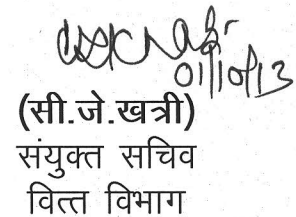 01/10/13
(सी.जे.खत्री)
संयुक्त सचिव
वित्त विभाग